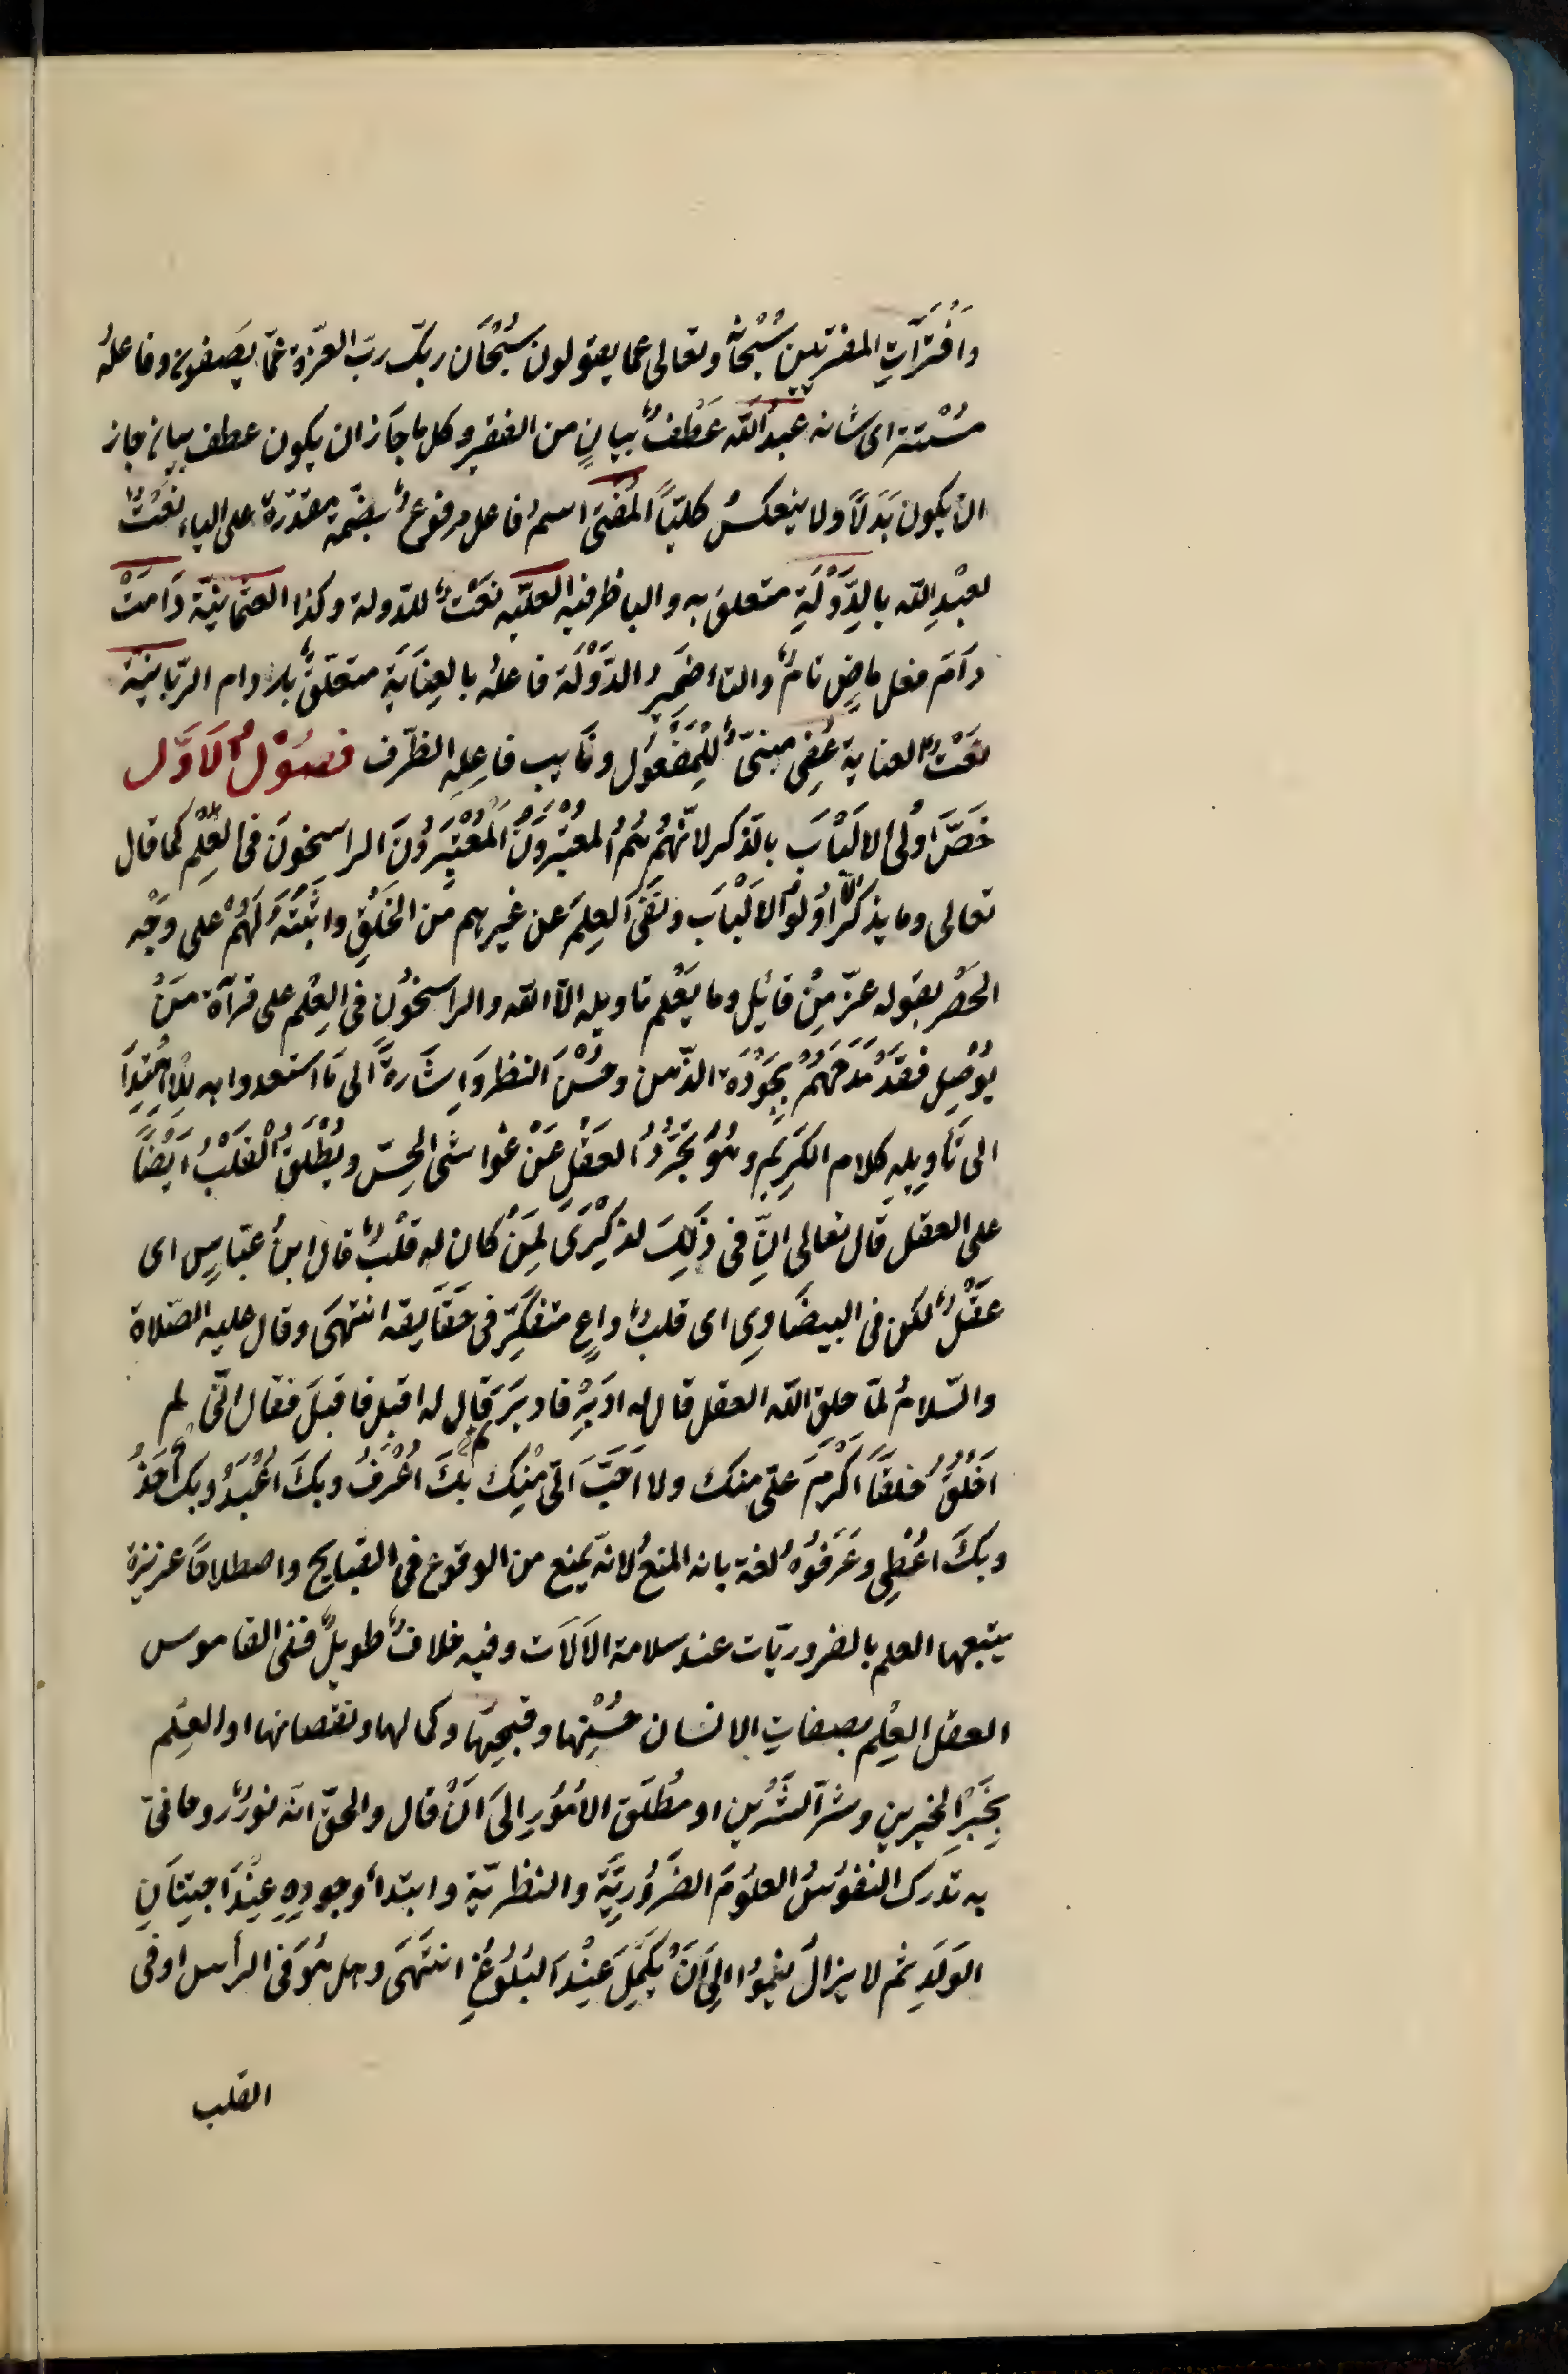 وَافْتَرَاتِ المفترين سُبْحَانَهُ وتعالى عما يقولون سُبْحَان ربّك ربّ العزّة عَمّا يَصِفون وفاعلهُ
مُسْتتراى شانه عبدُ اللّه عَطْفُ بيانٍ من الفقير وكل ما جَاز ان يكون عطف بيان جاز
ان يكون بَدَلًا ولا ينعكسُ كليّاً المُفْتى اسمُ فاعل مرفوعٌ بضمّة مقدّرة على الياء نَعْتٌ
لعبْدِ اللّه بالدَّوْلَةِ متعلق به والبا ظرفيه العليّه نَعْتٌ للدّولة وكذا العثمانيّة دَامَتْ
دَامَ فعل ماضٍ تامٌ والتاء ضمير الدَّوْلَة فاعله بالعِنَايَة متعلّقٌ بدام الرّبانيّة
نَعْتٌ العناية عُفِى مبنىٌّ لِلْمَفْعُول ونَايب فاعِلِه الظّرف فصُوْل الاَوَّل
خَصَّ اُولى الالْبَابَ بالتذكر لانّهُمْ هُمُ المعْتَبَرُونَ المُعْتَبِرُونَ الراسِخونَ فى العِلْم كما قال
تعالى وما يذكر الّا اُولُو الالْبَاب ونَفَى العِلمَ عن غيرهم من الخَلْقِ واثبَتَهُ لَهُمْ على وَجْه
الحَصْر بقوله عزّ مِنْ قائِل وما يَعْلم تاويله الّا اللّه والراسخُون فى العِلْم على قرآة مَنْ
يُوْصِل فقَدْ مَدَحَهُمْ بِجَوْدَة الذّهن وحُسْن النظر وَاِشَارَةً الى مَا استعدوا به لِلاِهْتِدَا
الى تَأويلِهِ كلام الكَرِيم وهُوَ تَجَرُّدُ العَقْلِ عَنْ غواشى الحِسّ ويُطْلَقُ القَلْبُ اَيْضًا
على العقل قَال تعالى انّ فى ذَلِكَ لذِكْرَى لِمَنْ كان له قَلْبٌ قال ابنُ عَبّاسٍ اى
عَقْلٌ لكن فى البيضَاوِى اى قلبٌ واعٍ متفكّر فى حَقَايقه انتهَى وقال عليه الصّلاة
والسّلامُ لمّا خلق اللّه العقل قال له ادَبِرْ فادبَرَ ثم قال له اقبل فاقبلَ فقال انّى لم
اخْلُقْ خلقًا اكْرَمَ علىّ منك ولا احَبَّ الىّ مْنِك بكَ اُعْرَفُ وبكَ اُعْبَدُ وبك آخذُ
وبكَ اعُطِى وعَرَفُوْهُ لغة بانه المنعُ لانه يمنع من الوقوع فى القبايح واصطلاحًا غريزة
يتبعها العلم بالضروريّات عند سلامة الاَلاَت وفيه خلافٌ طويلٌ ففى القاموس
العقل العِلم بصفاتِ الانسان حُسْنِها وقبحِهَا وكمالها ونقصانها اوالعِلم
بِخَيرِ الخيرين وشرّ الشَّرَّين او مُطلَق الاُمُوُرِ اِلىَ انْ قال والحقّ انه نورٌ روحانىّ
به تدرك النفوسُ العلُومَ الضَرُورِيَّةَ والنظريّة وابتدأ وجودِهِ عِنْدَ اجتِنَانِ
الوَلَدِ ثم لا يزالُ ينموا اِلى اَنْ يَكْمَلَ عِنْدَ البُلُوغِ انتَهَى وهل هُوَ فى الرأس اوفى
القلب